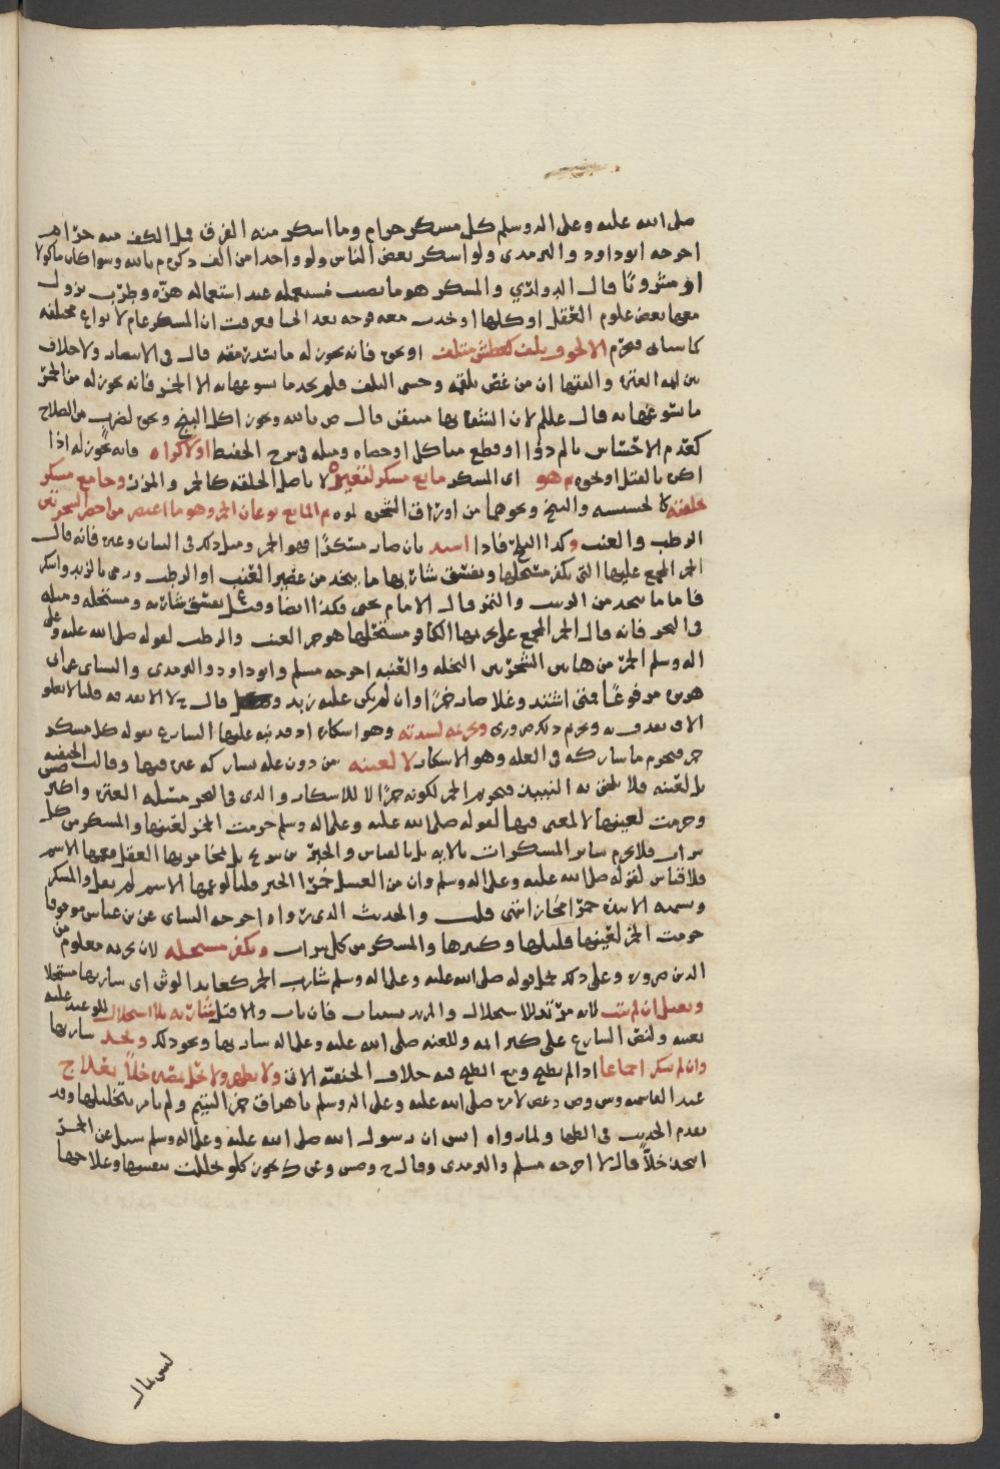 صلى الله عليه وعلى اله وسلم كل مسكر حرام وما اسكر منه الفرق فمل الكف منه حرام
اخرجه ابو داود والترمدي ولو اسكر بعض الناس ولو واحدا من الف وسوا كان ماكولا
او مشروبا قال الدواري والمسكر هو ما عند استعماله هزه وطرب يزول
معهما بعض علوم العقل او كلها او معه بعد فعرفت ان المسكر عام لانواع مختلفه
كما سياتي فيحرم الا لخوف تلف كعطش متلف او نحوه فانه يجوز له ما يسد رمقه قال في الانتصار ولا خلاف
بين ايمه العتره والفقها ان من غص بلقمه وخشي التلف فلم يجد ما يسوغها به الا الخمر فانه يجوز له من الخمر
ما يسوغها به قال علالم لان النفع بها متيقن قال ص بالله ويجوز اكل البنج ونحوه لضرب من الصلاح
كعدم الاحساس بالم دوا او قطع او حصاه ومثله في شرح الحفيظ او لاكراه فانه يجوز له اذا
اكره بالقتل او نحوه ثم هو اى المسكر مايع مسكر لتغيره لا باصل الخلقه كالخمر والمزر وجامع مسكر
خلقته كالحسيسه والبنج ونحوهما من اوراق الشجره ثم المايع نوعان الخمر وهو ما اعتصر من احد الشجرتين
الرطب والعنب وكذا البلح فاذا اشتد بان صار مسكرا فهو الخمر ومثل ذلك في البيان وغيره فانه قال
الخمر المجمع عليها التي يكفر مستحلها ويفسق شاربها ما يتخذ من عصير العنب او الرطب ورمى بالزبد واسكر
فاما ما يتخذ من الزبيب والتمر قال الامام يحيى فكذا ايضا وقيل يفسق شاربه ومستحله ومثله
في البحر فانه قال الخمر المجمع على تحريمها الكافر مستحلها هو خمر العنب والرطب لقوله صلى الله عليه وعلى
اله وسلم الخمر من هاتين الشجرتين النخله والعنبه اخرجه مسلم وابو داود والترمدي والنساى عن ابى
هريره مرفوعا فمتى اشتد وغلا صار خمرا وان لم يكن عليه زبد قال ح لا الا بعد قلنا لا يغلو
الا وتحريم ذلك ضروري وتحريمه لشدته وهو اسكاره اذ قد نبه عليها الشارع بقوله كل مسكر
خمر فيحرم ما شاركه في العله وهو الاسكار لا لعينه من دون عله يشاركه غيره فيها وقالت الحنفيه
بل لعينه فلا يلحق به النبيذ فتحريم الخمر لكونه خمرا لا للاسكار والذى في البحر مسئله العتره واكثر
وحرمت لعينها لا لمعنى فيها لقوله صلى الله عليه وعلى اله وسلم حرمت الخمر لعينها والمسكر من كل
شراب فلا يحرم ساير المسكرات بالايه بل بالقياس والخبر بل لمخامرتها العقل فعمها الاسم
فلا قياس لقوله صلى الله عليه وعلى اله وسلم وان من العسل خمرا الخبر قلنا لو عمها الاسم لم يقل والمسكر
وتسميه الانبذه خمرا مجاز انتهى قلت والحديث الذى رواه اخرجه النساى عن بن عباس موقوفا
حرمت الخمر لعينها قليلها وكثيرها والمسكر من كل شراب ويكفر مستحله لان تحريمه معلوم من
الدين ضروره وعلى ذلك يحمل قوله صلى الله عليه وعلى اله وسلم شارب الخمر كعابد الوثن اى شاربها مستحلا
ويقتل ان لم يتب لانه مرتد للاستحلال والمرتد يستتاب فان تاب والا قتل شاربه بلا استحلال للوعيد عليه
بعينه ولنص الشارع على كبرانه وللعنه صلى الله عليه وعلى اله شاربها ونحو ذلك ويحد شاربها
وان لم يسكر اجماعا اذا لم يطبخ ومع الطبخ فيه خلاف الحنفيه الاتى ولا يطهر ولا يحل بمصيره خلا بعلاج
عند القاسميه وش وص لامره صلى الله عليه وعلى اله وسلم باهراق خمر اليتيم ولم يامر بتخليلها وقد
تقدم الحديث في الطهاره ولما رواه انس ان رسول الله صلى الله عليه وعلى اله وسلم سيل عن الخمر
اتتخذ خلا قال لا اخرجه مسلم والترمدى وقال ح يجوز كلو تخللت بنفسها وعلاجها